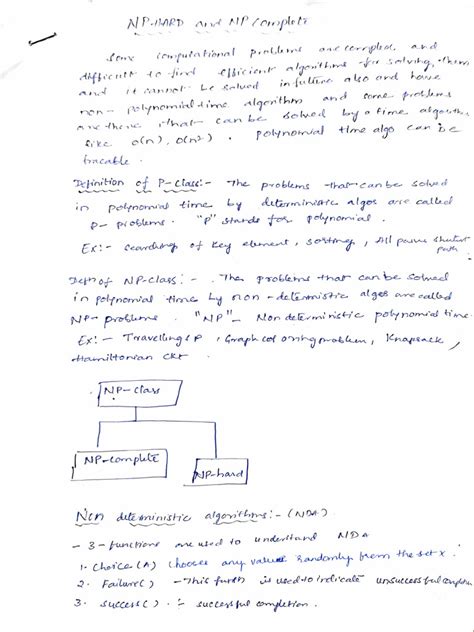 NP-HARD and NP Complete
Some computational problems are complex, and
difficult to find efficient algorithms for solving them
and it cannot be solved in future also and have
non-polynomial time algorithm and some problems
are there that can be solved by a time algorithm
like O(n), O(n2). Polynomial time algo can be
tracable.
Definition of P-class:- The problems that can be solved
in polynomial time by deterministic algos are called
P- problems. "P" stands for polynomial.
Ex:- searching of key element, sorting, All pairs shortest
path
Defn of NP-class:- The problems that can be solved
in polynomial time by non-deterministic algos are called
NP- problems. "NP"- Non deterministic polynomial time
Ex:- Travelling S P, Graph coloring problem, Knapsack,
Hamiltonian CKt
NP-class
NP-complete
NP-hard
Non deterministic algorithms:- (NDA)
- 3-functions are used to understand NDA
1. Choice(A) chooses any value randomly from the set x.
2. Failure() - This funtn is used to indicate unsuccessful completion
3. success() :- successful completion.